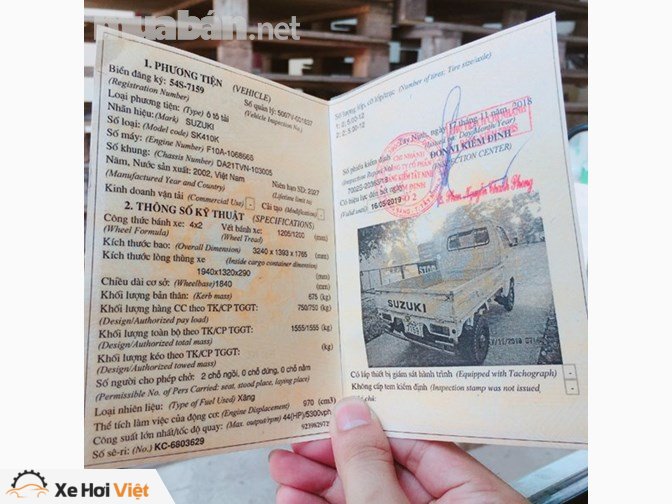 muaban.net
1. PHƯƠNG TIỆN (VEHICLE)
Biển đăng ký: 54S-7159 Số quản lý: 5007V-021637
(Registration Number) (Vehicle Inspection No.)
Loại phương tiện: (Type) ô tô tải
Nhãn hiệu: (Mark) SUZUKI
Số loại: (Model code) SK410K
Số máy: (Engine Number) F10A-1068665
Số khung: (Chassis Number) DA21TVN-103005
Năm, Nước sản xuất: 2002, Việt Nam Niên hạn SD: 2027
(Manufactured Year and Country) (Lifetime limit to)
Kinh doanh vận tải (Commercial Use) - Cải tạo (Modification) -
2. THÔNG SỐ KỸ THUẬT (SPECIFICATIONS)
Công thức bánh xe: 4x2 Vết bánh xe: 1205/1200 (mm)
(Wheel Formula) (Wheel Tread)
Kích thước bao: (Overall Dimension) 3240 x 1393 x 1765 (mm)
Kích thước lòng thùng xe (Inside cargo container dimension)
1940x1320x290 (mm)
Chiều dài cơ sở: (Wheelbase) 1840 (mm)
Khối lượng bản thân: (Kerb mass) 675 (kg)
Khối lượng hàng CC theo TK/CP TGGT: 750/750 (kg)
(Design/Authorized pay load)
Khối lượng toàn bộ theo TK/CP TGGT: 1555/1555 (kg)
(Design/Authorized total mass)
Khối lượng kéo theo TK/CP TGGT: (kg)
(Design/Authorized towed mass)
Số người cho phép chở: 2 chỗ ngồi, 0 chỗ đứng, 0 chỗ nằm
(Permissible No. of Pers Carried: seat, stood place, laying place)
Loại nhiên liệu: (Type of Fuel Used) Xăng
Thể tích làm việc của động cơ: (Engine Displacement) 970 (cm3)
Công suất lớn nhất/tốc độ quay: (Max. output/rpm) 44(HP)/5300vph
Số sê-ri: (No.) KC-6803629
Số lượng lốp, cỡ lốp/trục (Number of tires, Tire size/axle)
1: 2; 5.00-12
2: 2; 5.00-12
Tây Ninh, ngày 17 tháng 11 năm 2018
(Issued on: Day/Month/Year)
Số phiếu kiểm định ĐƠN VỊ KIỂM ĐỊNH
(Inspection Report No) (INSPECTION CENTER)
Có hiệu lực đến hết ngày
(Valid until) 16/05/2019
SUZUKI
Có lắp thiết bị giám sát hành trình (Equipped with Tachograph) -
Không cấp tem kiểm định (Inspection stamp was not issued) -
Xe Hơi Việt